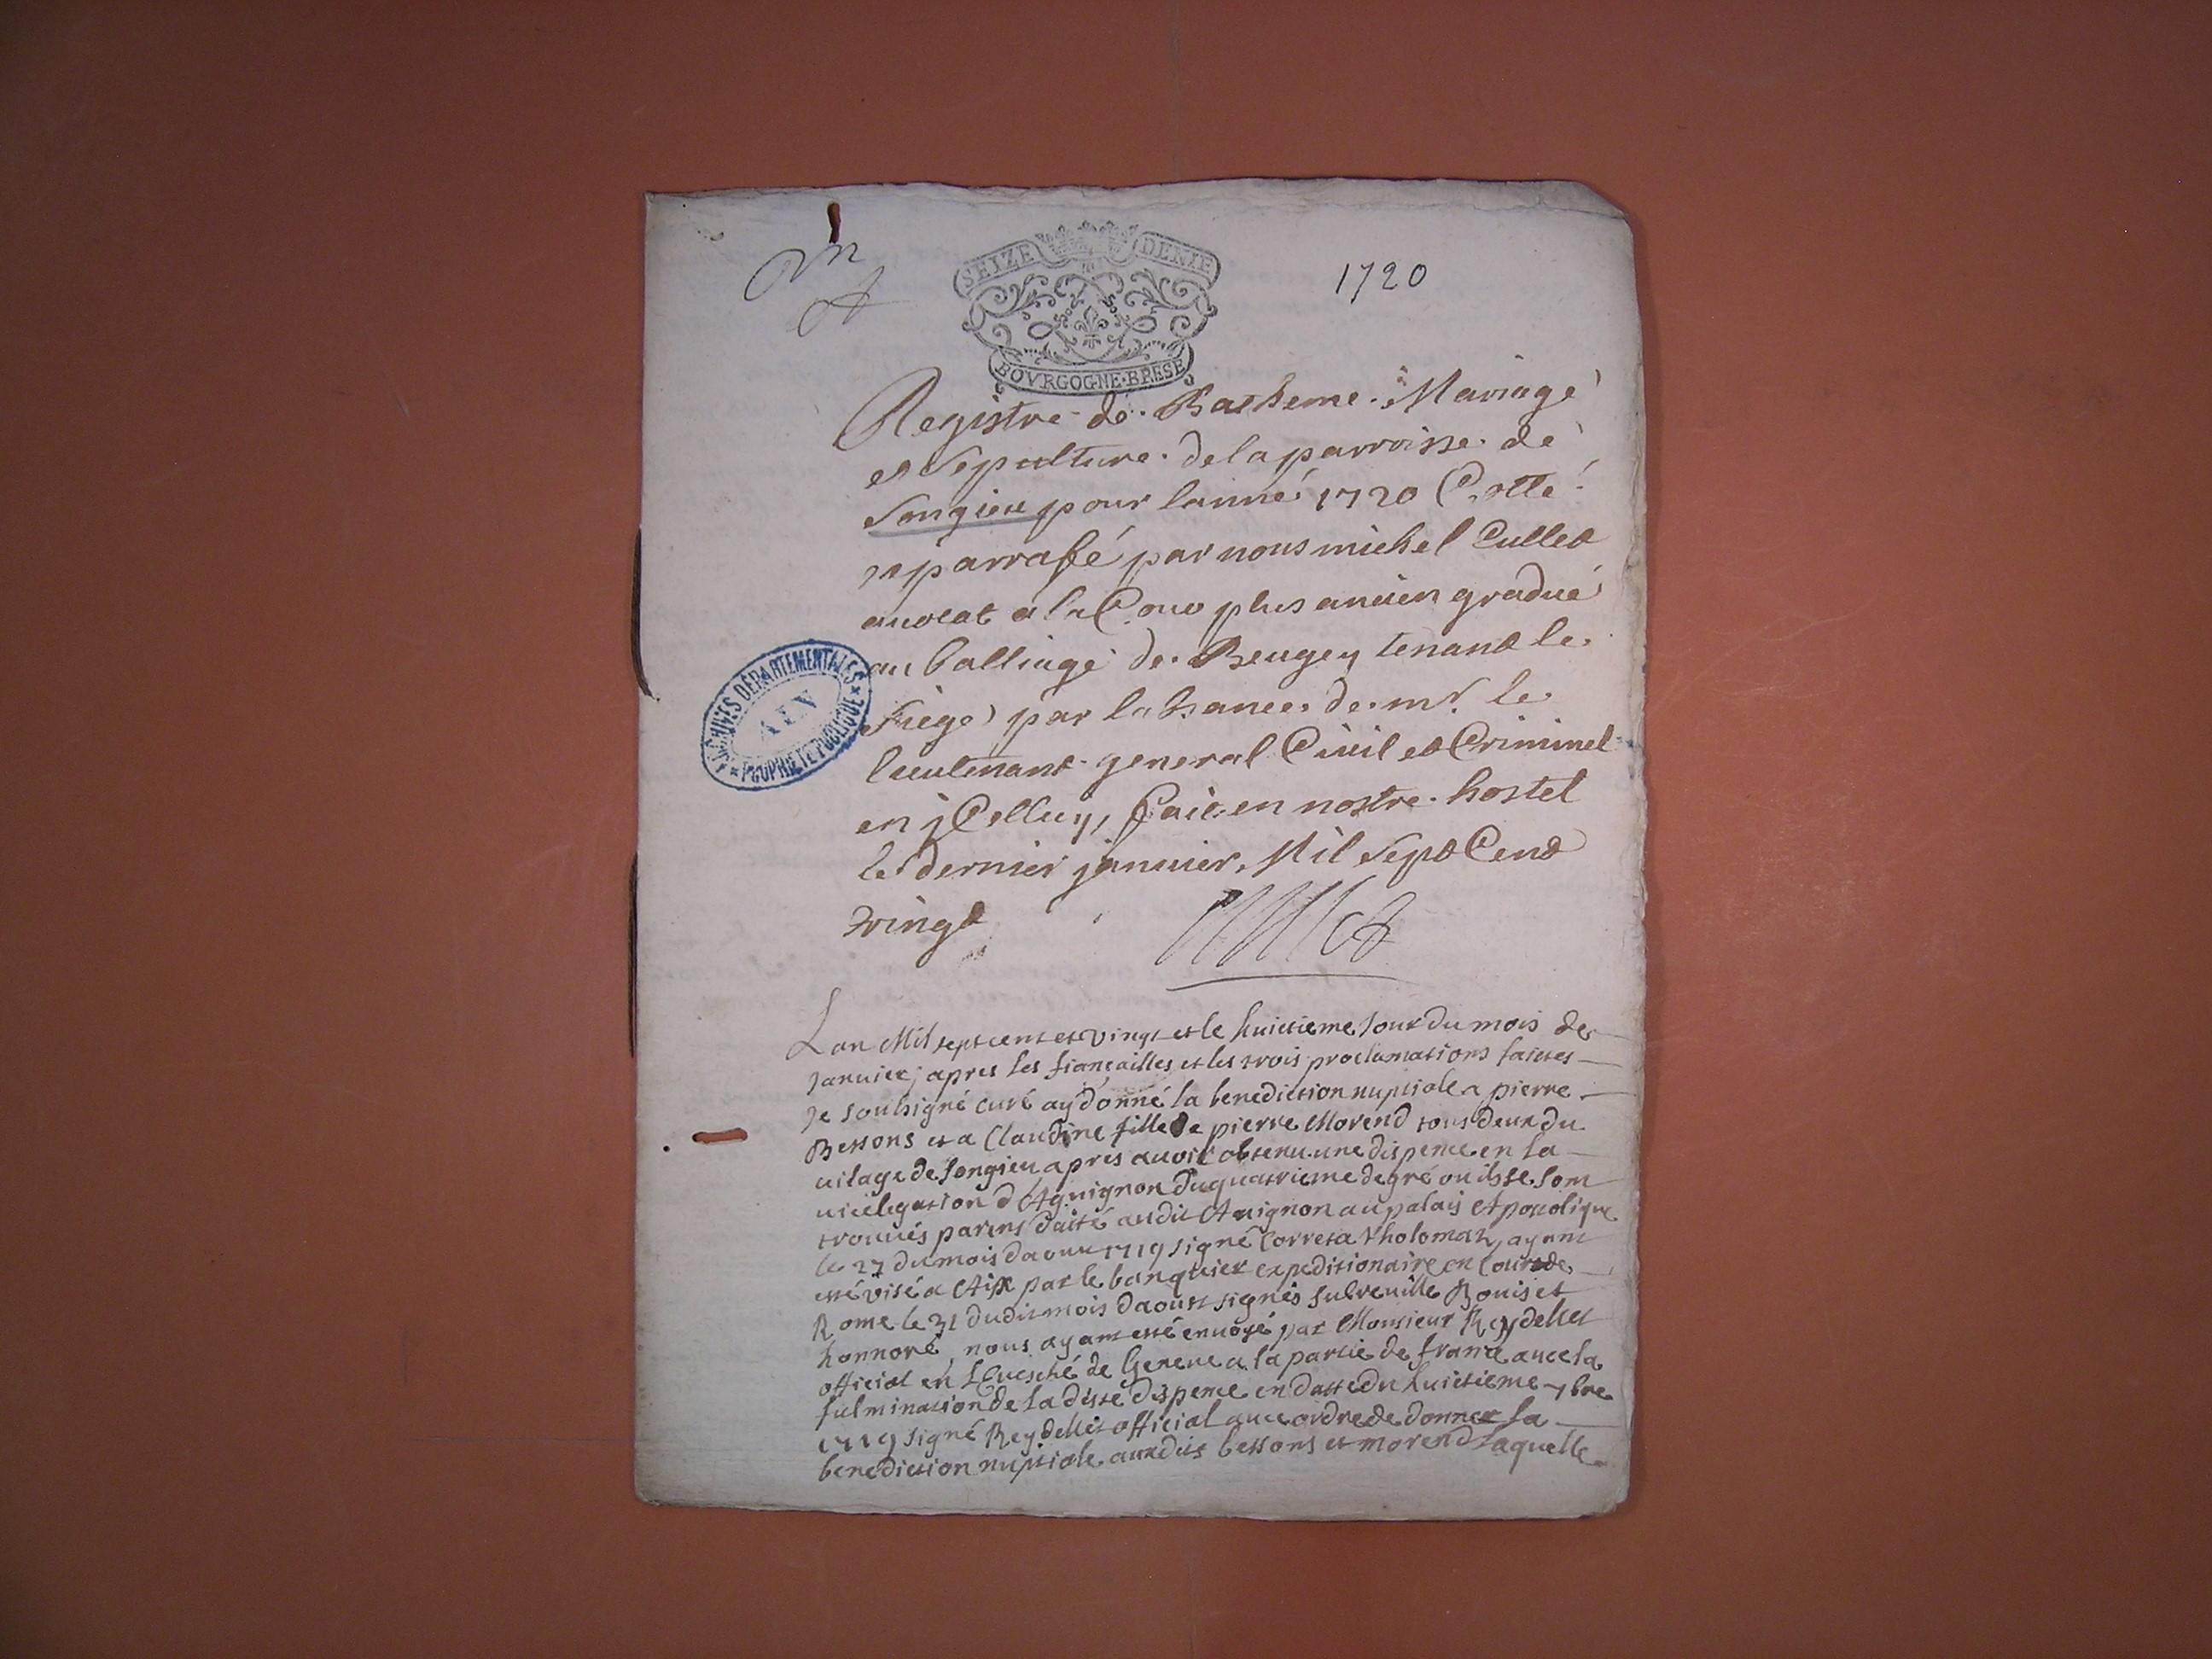 SEIZE DENIE
1720
BOVRGOGNE·BRESE
Registre de Batheme Mariage
et Sepulture de la parroisse de
Songieu pour lanné 1720 Cotté
et parrafé par nous michel Cullet
avocat a la Cour plus ancien gradué
au balliage de Beugey tenant le
siege par labsance de mr. le
lieutenant general Civil et Criminel
en jCelluy, fait en nostre hostel
le dernier janvier Mil Sept Cent
vingt
Cullet
ARCHIVES DÉPARTEMENTALES
AIN
PROPRIÉTÉ PUBLIQUE
Lan Mil sept cent et vingt et le huictieme Jour du mois de
Janvier; apres les fiançailles et les trois proclamations faites
Je soubsigné curé ay donné la benediction nuptiale a pierre
Bessons et a Claudine fille de pierre Morend tous deux du
vilage de songieu apres avoir obtenu une dispence en la
vicelegation d'Avignon du quatrieme degré ou ils se sont
trouvés parens datté audit Avignon au palais Apostolique
le 27 du mois daoust 1719 signé Correta Tholomaz, ayant
esté visé a Aix par le banquier expeditionaire en Cour de
Rome le 31 dudit mois daoust signés Subreville Bouis et
honnoré nous ayant esté envoyé par Monsieur Reydellet
official en L'Evesché de Geneve a la partie de france avec la
fulmination de la ditte dispence en datte du huictieme 7bre
1719 signé Reydellet official avec ordre de donner la
benediction nuptiale auxdits bessons et morend laquelle